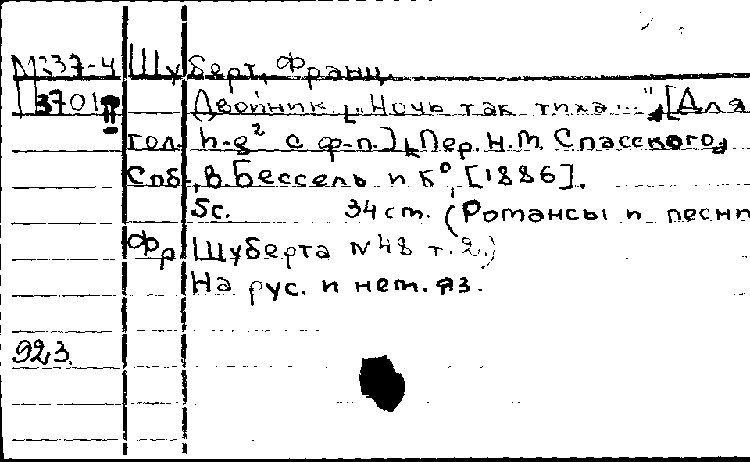 М337-4 Шуберт, Франц.
3701 Двойник. "Ночь так тиха..." [Для
гол. h-g² с ф-п.] Пер. Н.М. Спасского,
Спб., В. Бессель и К°, [1886].
5с. 34 cm. (Романсы и песни
Фр. Шуберта №48 т.2.)
На рус. и нем. яз.
923.